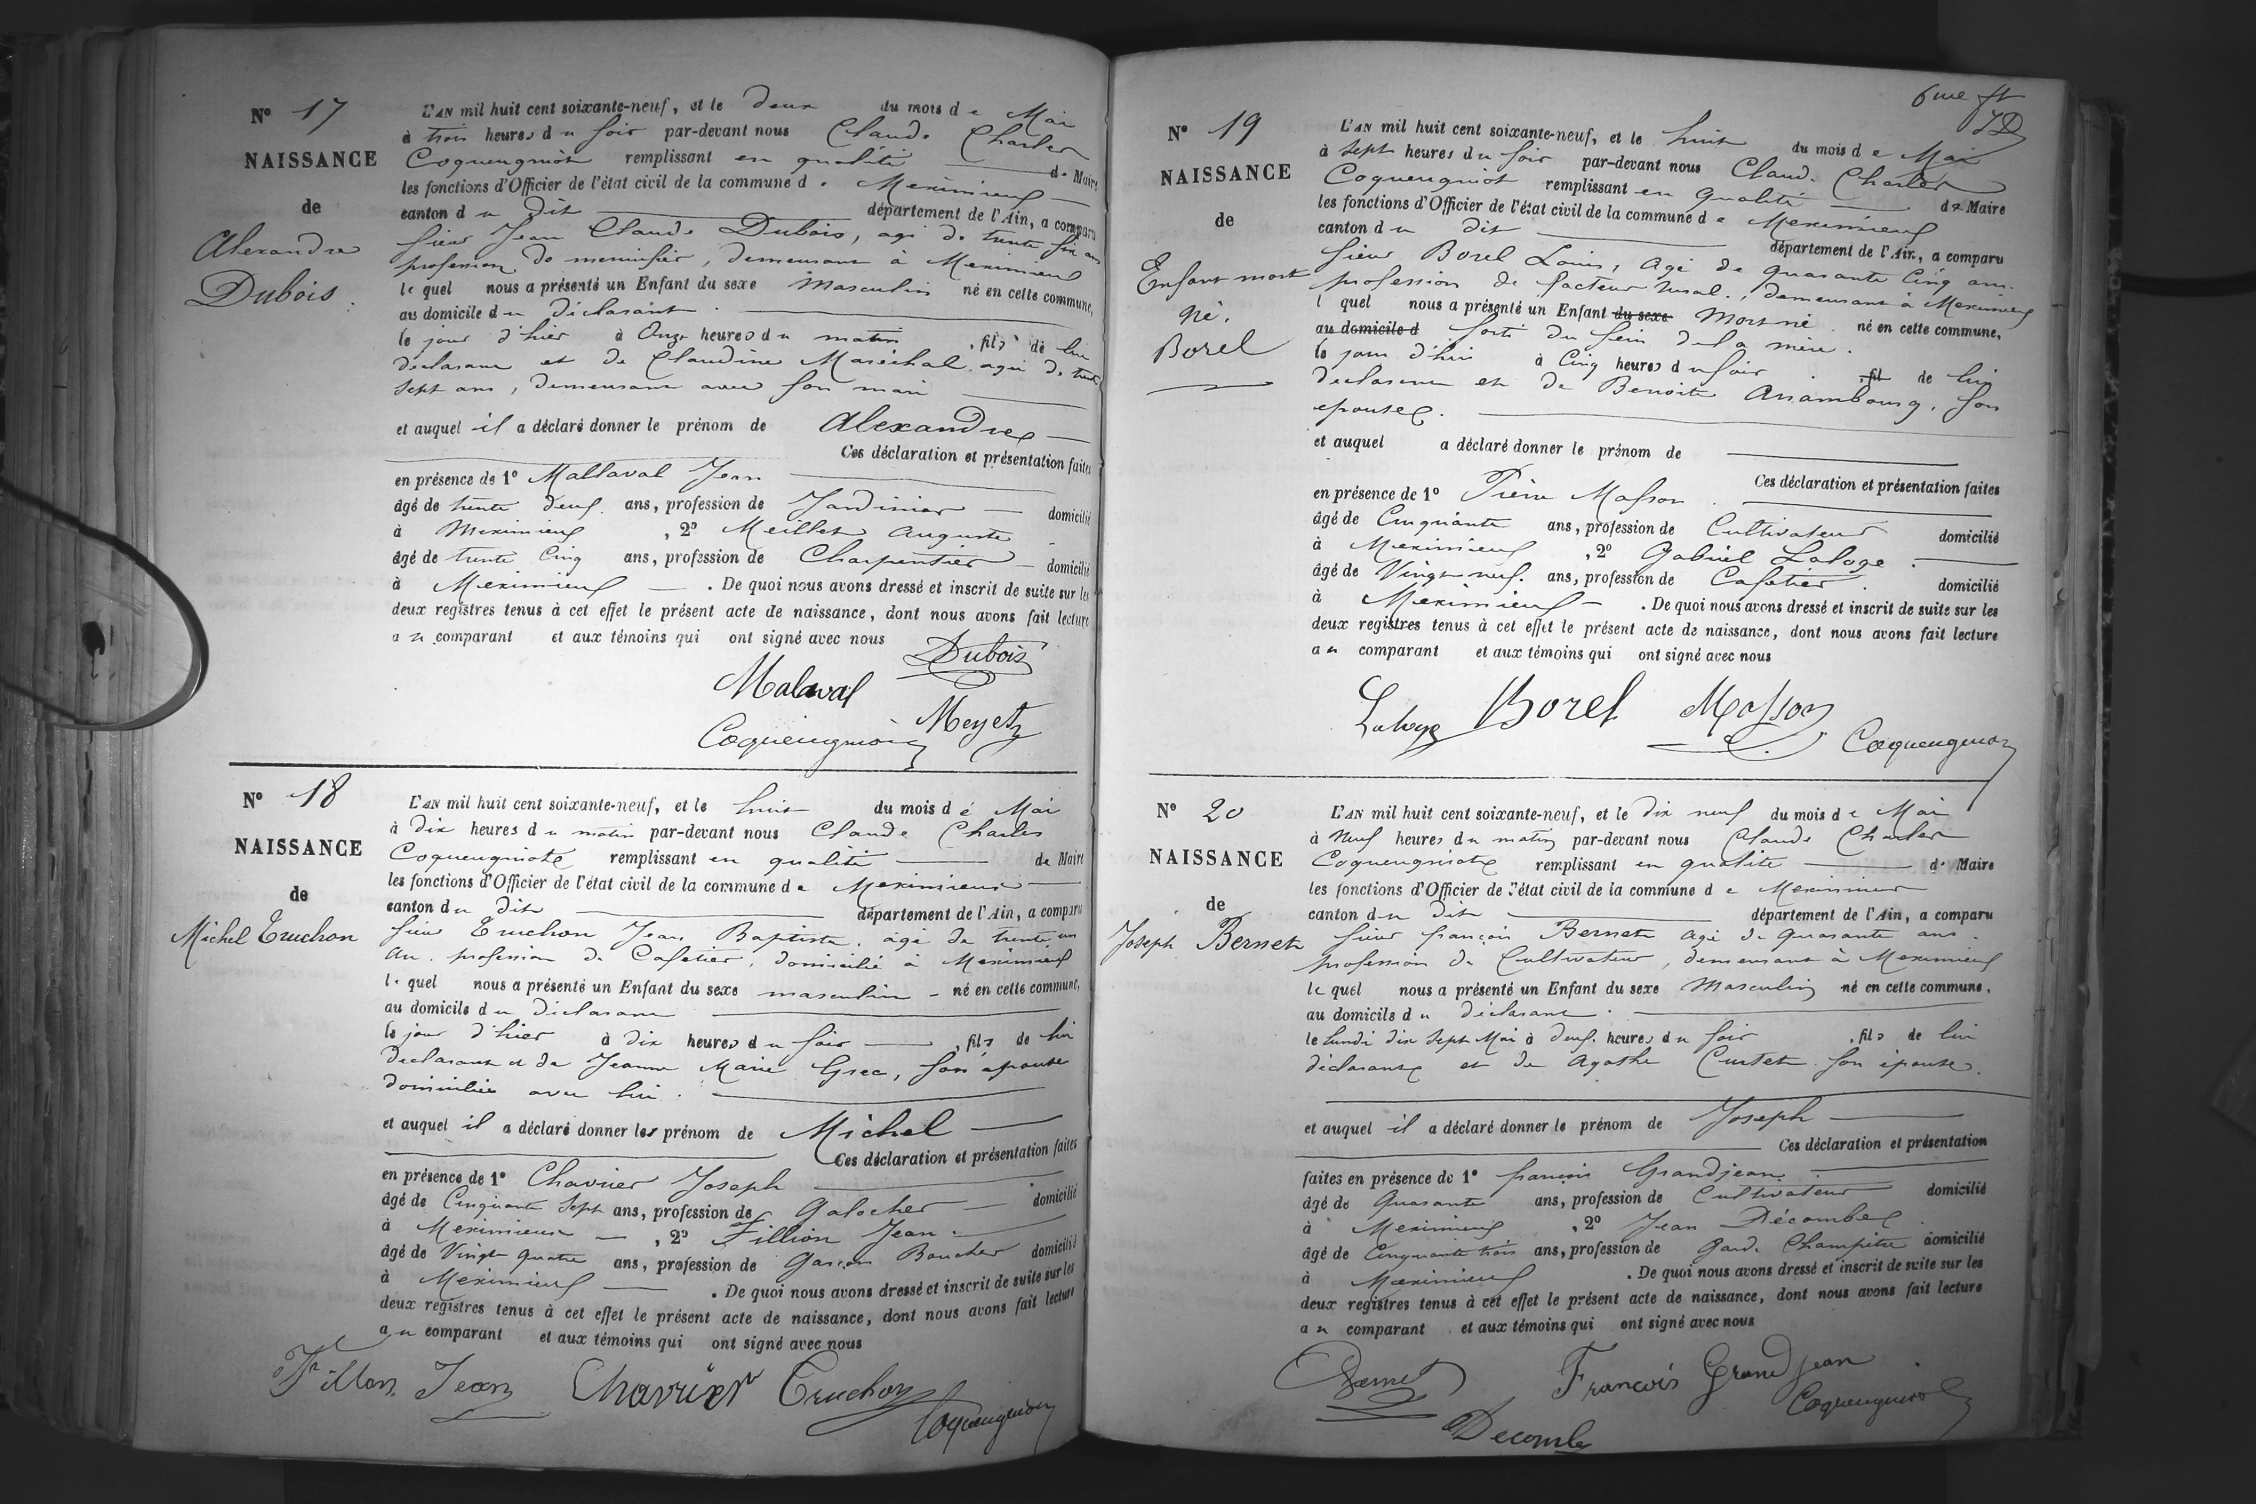 N° 17
NAISSANCE
de
Alexandre
Dubois.
L'AN mil huit cent soixante-neuf, et le deux du mois de Mai
à trois heures du soir par-devant nous Claude Charles
Coqueugniot remplissant en qualité de Maire
les fonctions d'Officier de l'état civil de la commune de Meximieux
canton du dit département de l'Ain, a comparu
sieur Jean Claude Dubois, agé de trente six ans
profession de menuisier, demeurant à Meximieux
lequel nous a présenté un Enfant du sexe Masculin né en cette commune,
au domicile du déclarant.
le jour d'hier à Onze heures du matin, fils de lui
déclarant et de Claudine Maréchal, agée de trente
sept ans, demeurant avec son mari
et auquel il a déclaré donner le prénom de Alexandre
Ces déclaration et présentation faites
en présence de 1° Mallaval Jean
âgé de trente deux ans, profession de Jardinier domicilié
à Meximieux, 2° Meillet Auguste
âgé de trente cinq ans, profession de Charpentier domicilié
à Meximieux. De quoi nous avons dressé et inscrit de suite sur les
deux registres tenus à cet effet le présent acte de naissance, dont nous avons fait lecture
au comparant et aux témoins qui ont signé avec nous
Dubois
Malaval
Meyet
Coqueugniot
N° 18
NAISSANCE
de
Michel Truchon
L'AN mil huit cent soixante-neuf, et le huit du mois dé Mai
à dix heures du matin par-devant nous Claude Charles
Coqueugniot remplissant en qualité de Maire
les fonctions d'Officier de l'état civil de la commune de Meximieux
canton du dit département de l'Ain, a comparu
sieur Truchon Jean Baptiste, agé de trente un
an. profession de Cafetier, domicilié à Meximieux
lequel nous a présenté un Enfant du sexe masculin né en cette commune,
au domicile du déclarant
le jour d'hier à dix heures du soir, fils de lui
déclarant et de Jeanne Marie Grec, son épouse
domiciliée avec lui.
et auquel il a déclaré donner les prénom de Michel
Ces déclaration et présentation faites
en présence de 1° Chavrier Joseph
âgé de Cinquante Sept ans, profession de Galocher domicilié
à Meximieux, 2° Fillion Jean
âgé de Vingt quatre ans, profession de Garçon Boucher domicilié
à Meximieux. De quoi nous avons dressé et inscrit de suite sur les
deux registres tenus à cet effet le présent acte de naissance, dont nous avons fait lecture
au comparant et aux témoins qui ont signé avec nous
Fillion Jean Chavrier Truchon
Coqueugniot
6me ft
N° 19
NAISSANCE
de
Enfant mort
Né.
Borel
L'AN mil huit cent soixante-neuf, et le huit du mois de Mai
à Sept heures du soir par-devant nous Claude Charles
Coqueugniot remplissant en qualité de Maire
les fonctions d'Officier de l'état civil de la commune de Meximieux
canton du dit département de l'Ain, a comparu
sieur Borel Louis, agé de quarante cinq ans.
profession de facteur rural, demeurant à Meximieux
lquel nous a présenté un Enfant du sexe Mort né né en cette commune,
au domicile d sorti du sein de la mère.
le jour d'hui à Cinq heures du soir, fil de lui
déclarant et de Benoite Ariambourg, son
épouse.
et auquel a déclaré donner le prénom de
Ces déclaration et présentation faites
en présence de 1° Pierre Masson
âgé de Cinquante ans, profession de Cultivateur domicilié
à Meximieux, 2° Gabriel Laloge
âgé de Vingt neuf ans, profession de Cafetier domicilié
à Meximieux. De quoi nous avons dressé et inscrit de suite sur les
deux registres tenus à cet effet le présent acte de naissance, dont nous avons fait lecture
au comparant et aux témoins qui ont signé avec nous
Laloge Borel Masson
Coqueugniot
N° 20
NAISSANCE
de
Joseph Bernet
L'AN mil huit cent soixante-neuf, et le dix neuf du mois de Mai
à Neuf heures du matin par-devant nous Claude Charles
Coqueugniot remplissant en qualité de Maire
les fonctions d'Officier de l'état civil de la commune de Meximieux
canton du dit département de l'Ain, a comparu
sieur françois Bernet agé de quarante ans.
profession de Cultivateur, demeurant à Meximieux
lequel nous a présenté un Enfant du sexe Masculin né en cette commune,
au domicile du déclarant.
le lundi dix sept Mai à deux heures du soir, fils de lui
déclarant et de Agathe Curtet son épouse.
et auquel il a déclaré donner le prénom de Joseph
Ces déclaration et présentation
faites en présence de 1° françois Grandjean
âgé de Quarante ans, profession de Cultivateur domicilié
à Meximieux, 2° Jean Décombe
âgé de Cinquante trois ans, profession de Garde Champêtre domicilié
à Meximieux. De quoi nous avons dressé et inscrit de suite sur les
deux registres tenus à cet effet le présent acte de naissance, dont nous avons fait lecture
au comparant et aux témoins qui ont signé avec nous
Bernet François Grandjean
Coqueugniot
Decombe